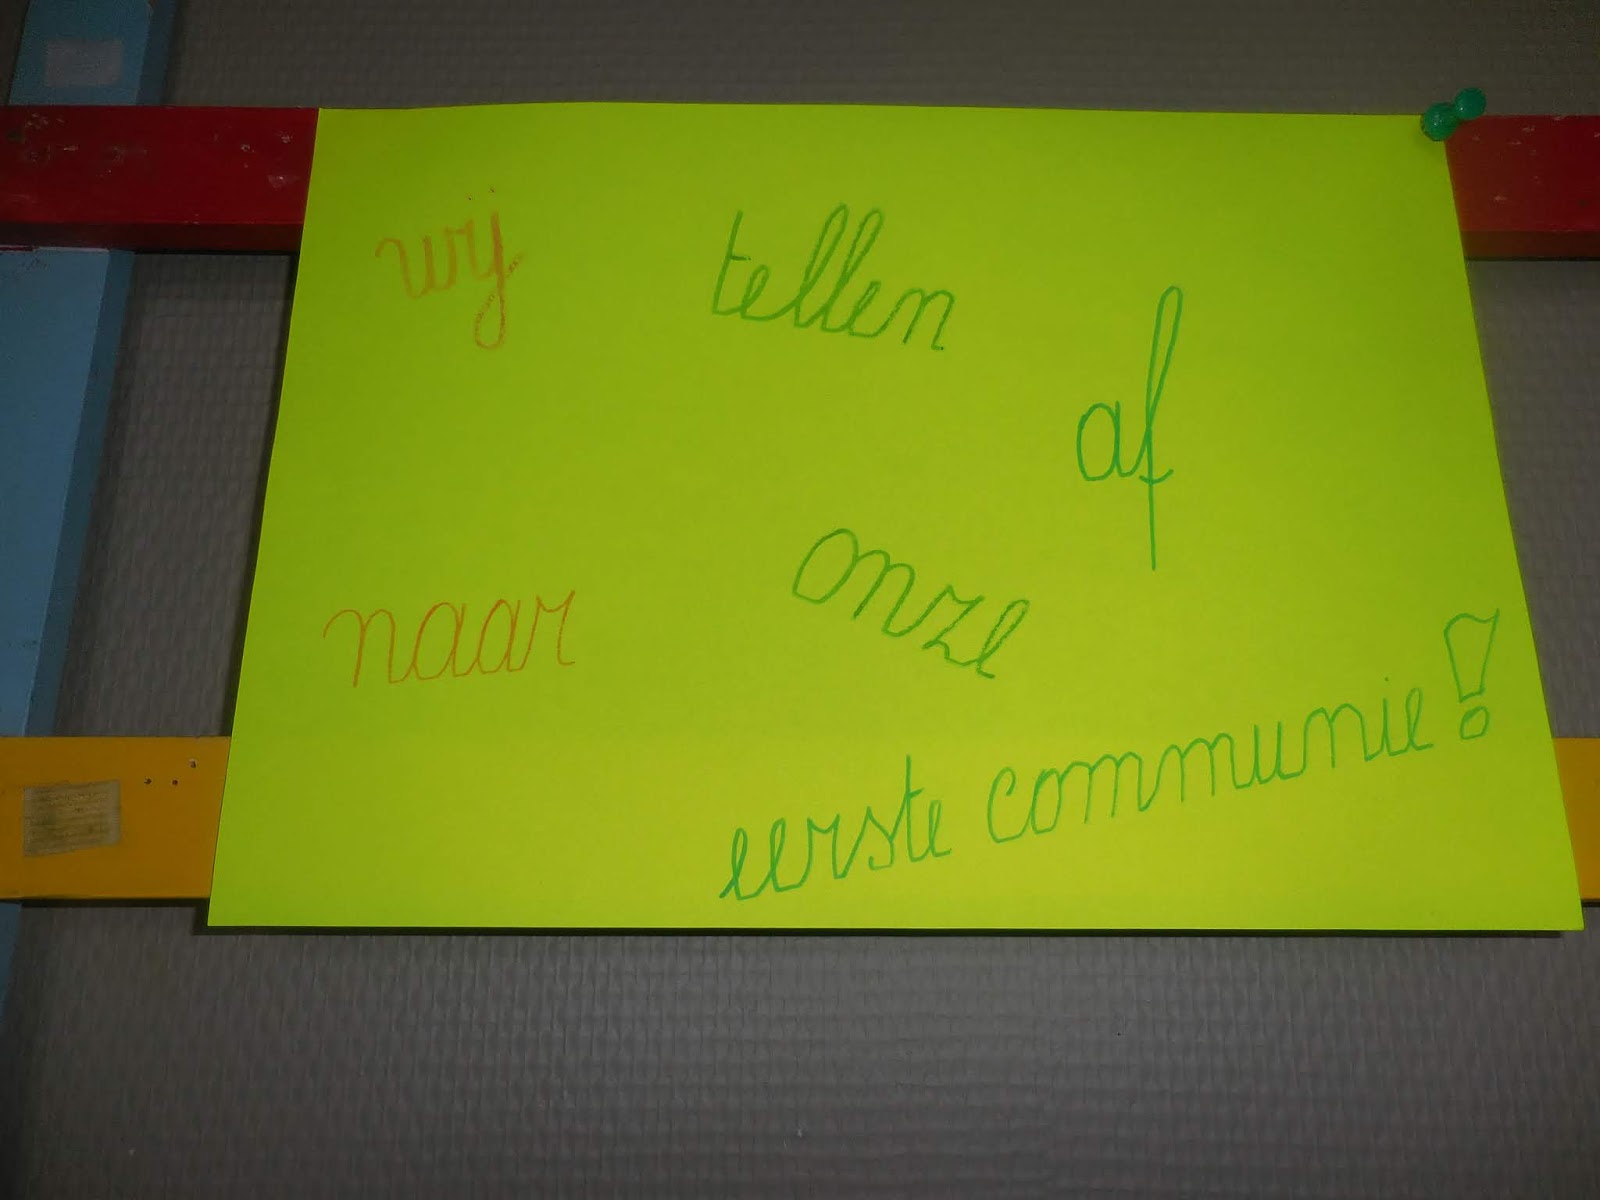 wij tellen af
naar onze
eerste communie!